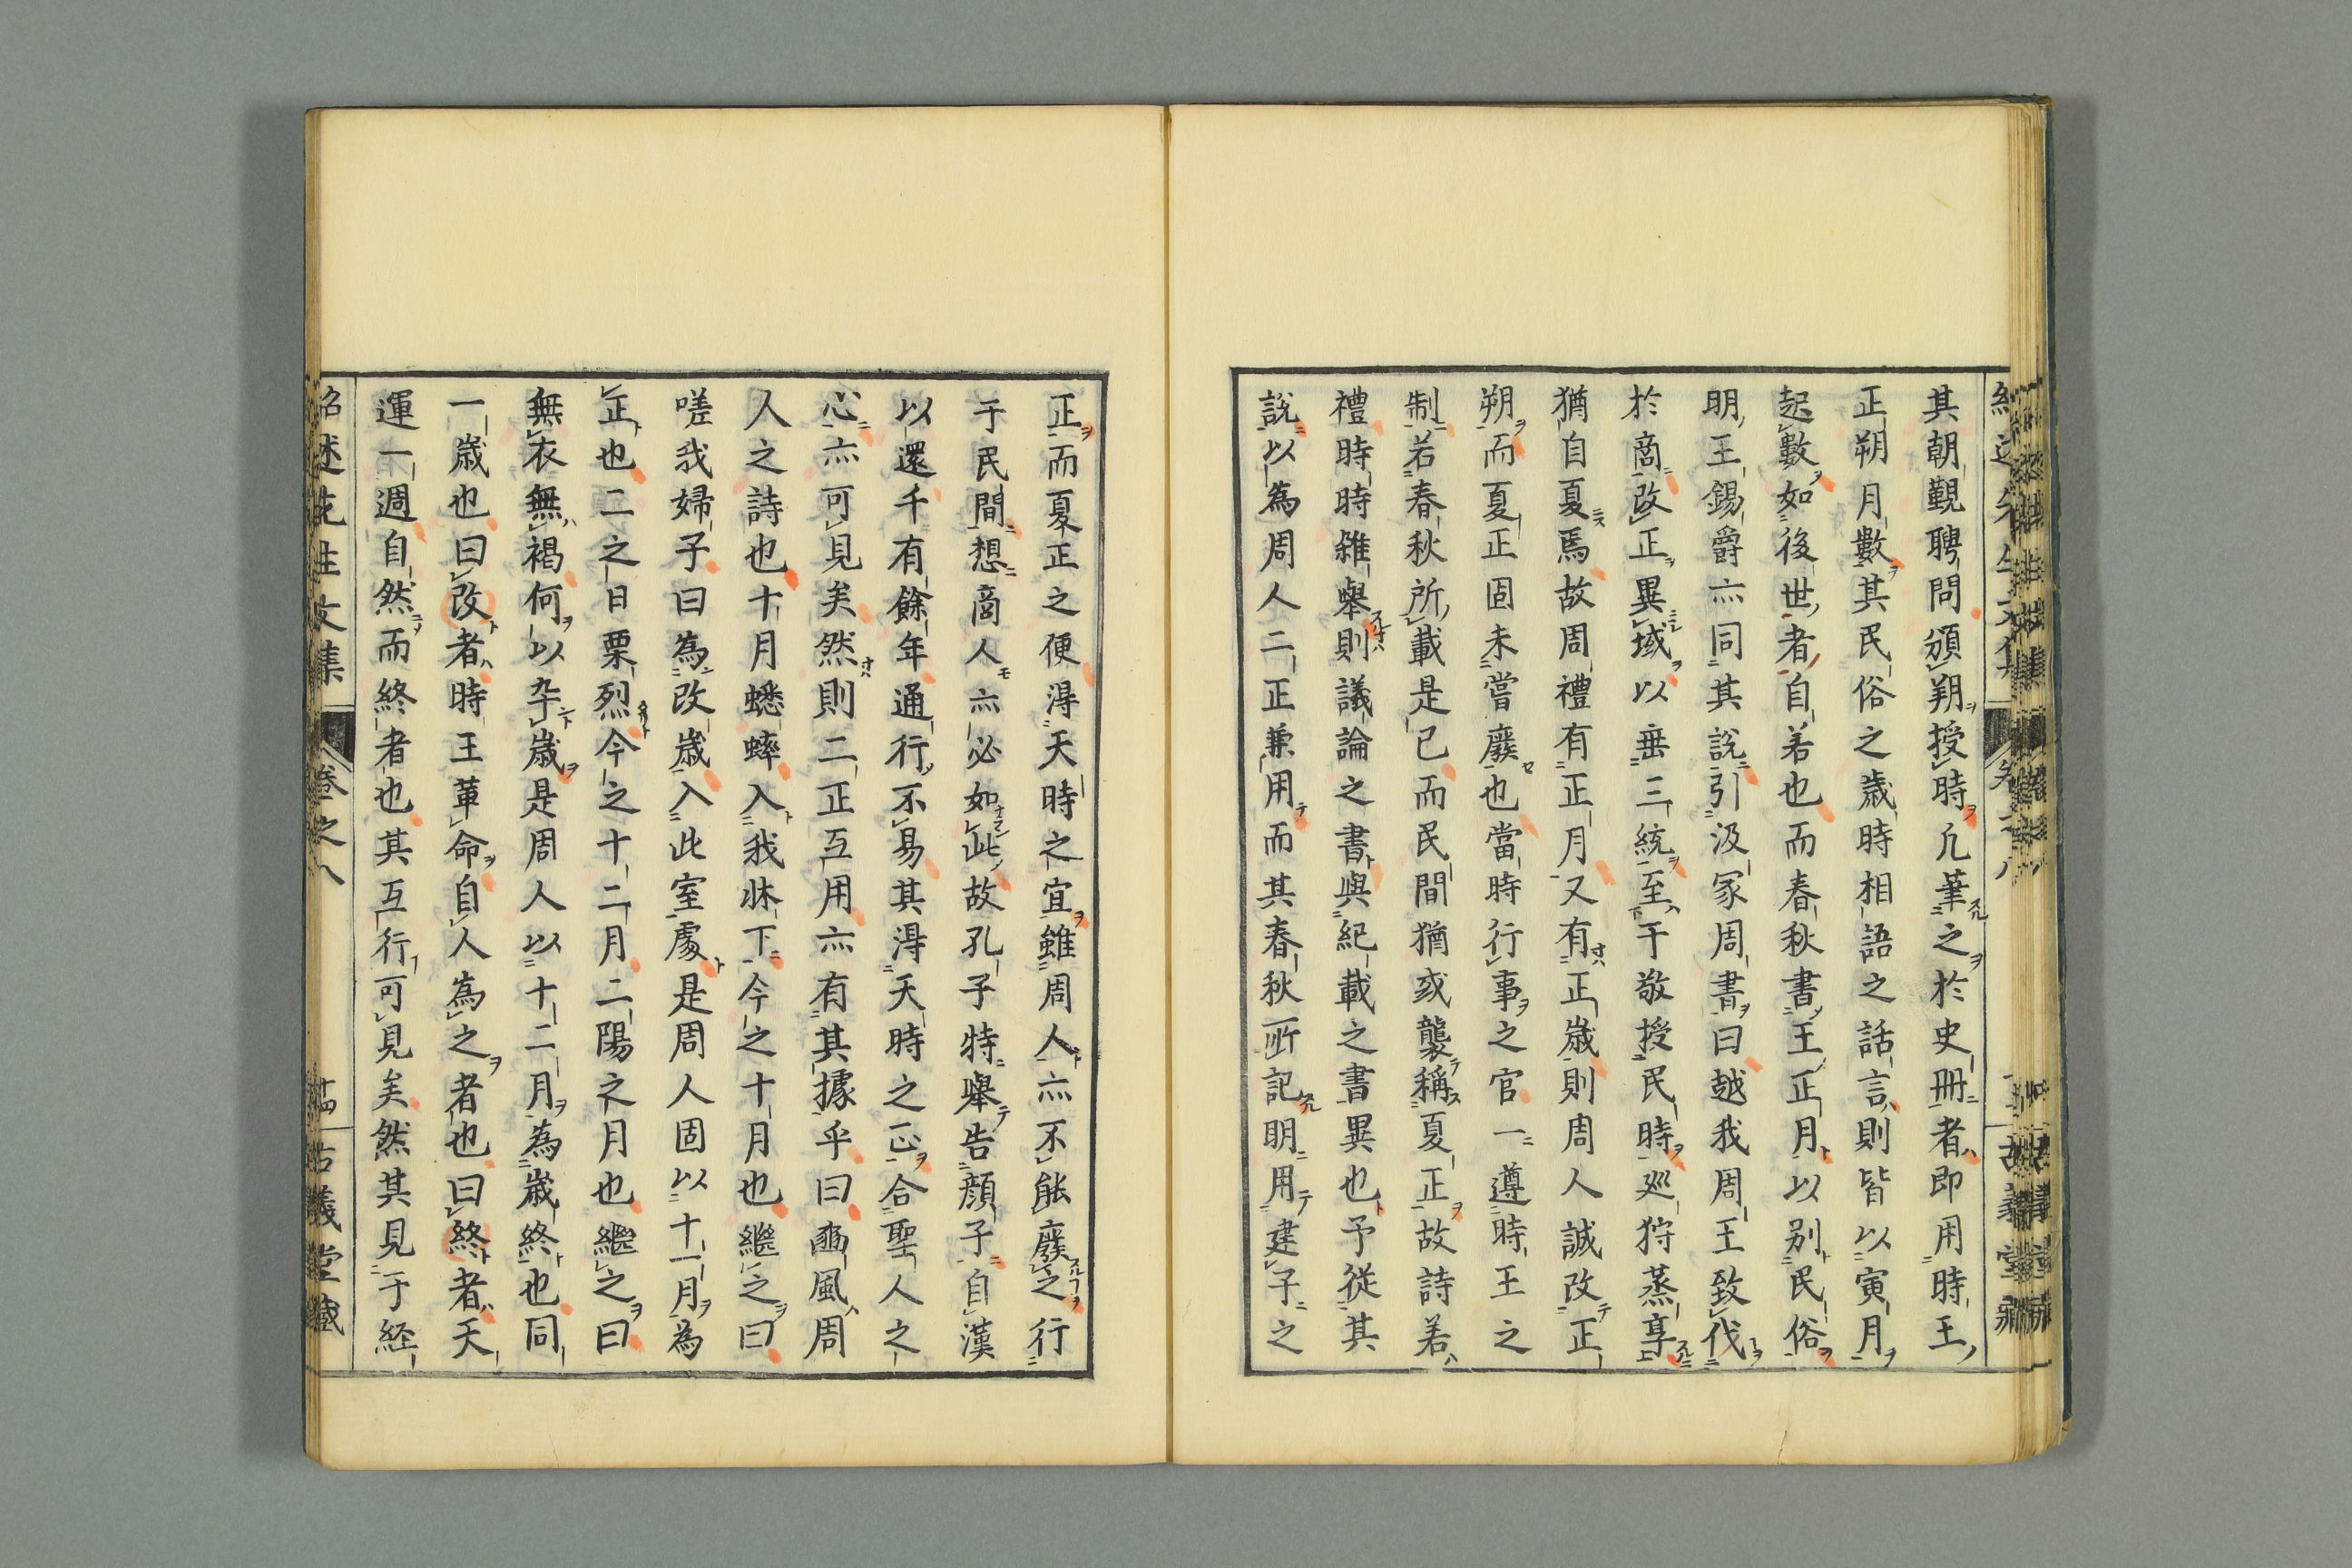 其朝覲聘問頒朔授時凢筆之於史冊者即用時王
正朔月數其民俗之歳時相語之話言則皆以寅月
起數如後世者自若也而春秋書王正月以别民俗
明王錫爵亦同其說引汲冢周書曰越我周王致伐
於商改正異域以垂三統至于敬授民時巡狩蒸享
猶自夏焉故周禮有正月又有正歳則周人誠改正
朔而夏正固未嘗廢也當時行事之官一遵時王之
制若春秋所載是已而民間猶或襲稱夏正故詩若
禮時時雜舉則議論之書與紀載之書異也予從其
說以為周人二正兼用而其春秋所記明用建子之
正而夏正之便淂天時之宜雖周人亦不能廢之行
于民間想商人亦必如此故孔子特舉告顔子自漢
以還千有餘年通行不易其淂天時之正合聖人之
心亦可見矣然則二正互用亦有其據乎曰豳風周
人之詩也十月蟋蟀入我牀下今之十月也繼之曰
嗟我婦子曰為改歳入此室處是周人固以十一月為
正也二之日栗烈今之十二月二陽之月也繼之曰
無衣無褐何以卒歳是周人以十二月為歳終也同
一歳也曰改者時王革命自人為之者也曰終者天
運一週自然而終者也其互行可見矣然其見于経
紹述先生文集 卷之八 古義堂藏